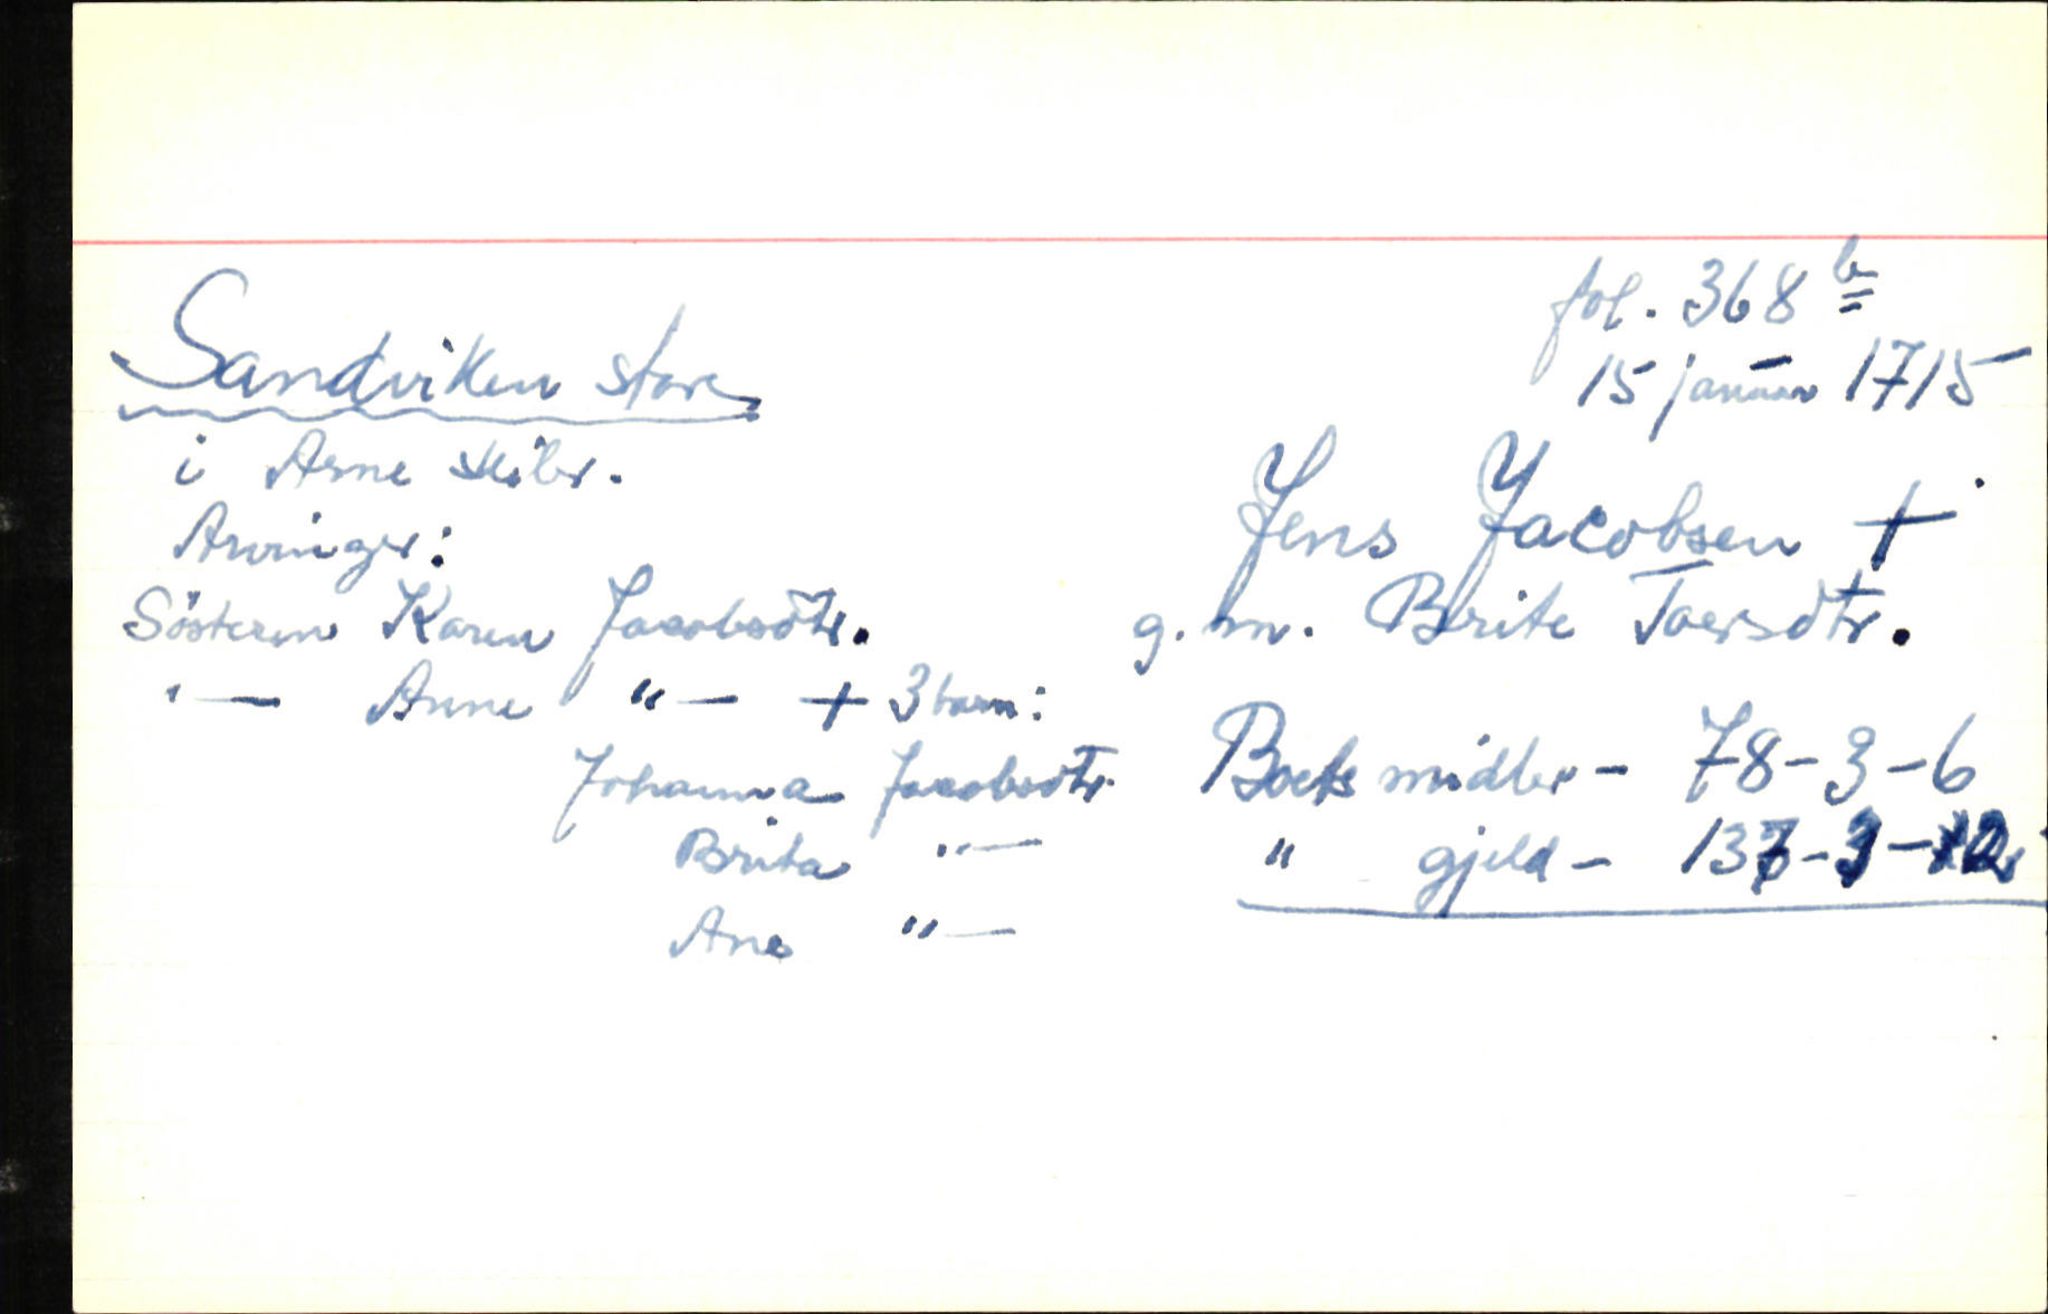 fol. 368 b
15 januar 1715
Sandviken store
i Arne skibr.
Arvinger:
Søsteren Karen Jacobsdtr.
"— Anne "— + 3 barn:
Johanna Jacobsdtr.
Brita "—
Ane "—
Jens Jacobsen +
g.m. Brite Toersdtr.
Boets midler - 78-3-6
" gjeld - 137-3-12